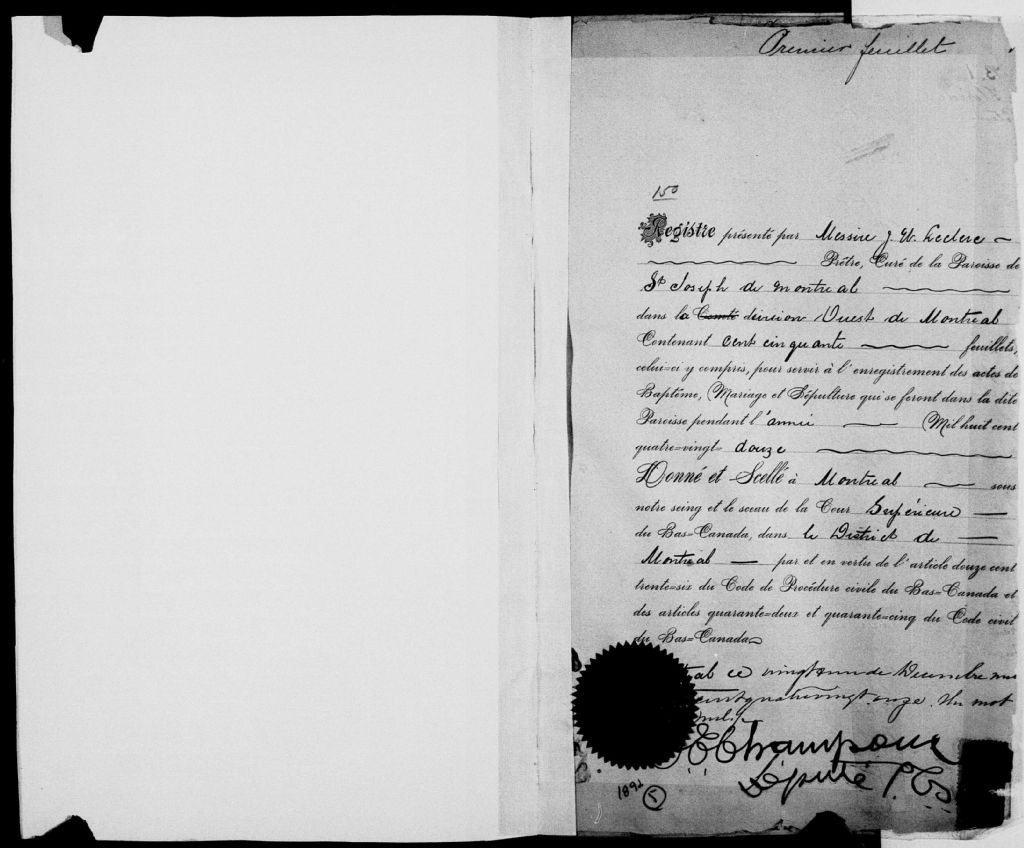 Premier feuillet
150
Registre présenté par Messire J. U. Leclerc
Prêtre, Curé de la Paroisse de
St Joseph de Montreal
dans la Comté division Ouest de Montreal
Contenant Cent cinquante feuillets,
celui-ci y compris, pour servir à l'enregistrement des actes de
Baptême, Mariage et Sépulture qui se feront dans la dite
Paroisse pendant l'année Mil huit cent
quatre-vingt douze
Donné et Scellé à Montreal sous
notre seing et le sceau de la Cour Supérieure
du Bas-Canada, dans le District de
Montreal par et en vertu de l'article douze cent
trente-six du Code de Procédure civile du Bas-Canada et
des articles quarante-deux et quarante-cinq du Code civil
du Bas-Canada
ce vingt un de Decembre
quatrevingt onze. Un mot
Champoux
Député P.C.S.
1892